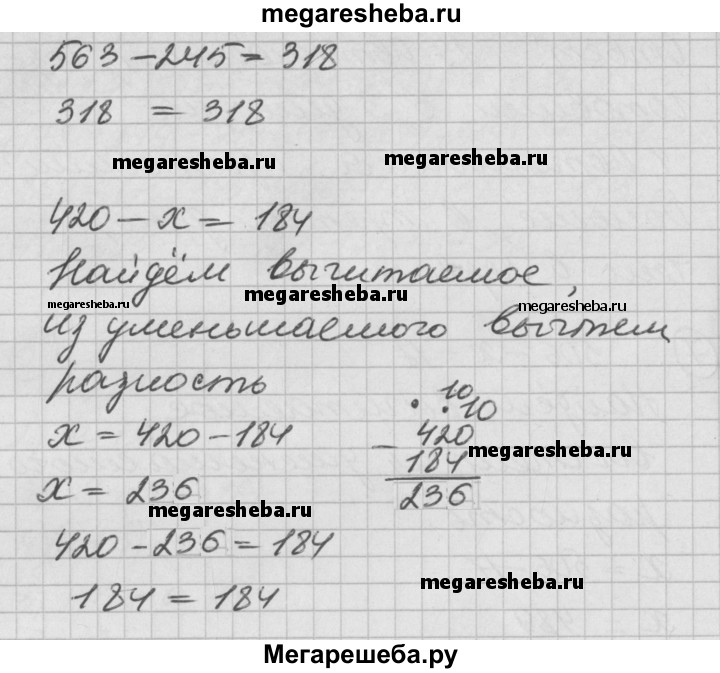 megaresheba.ru
563 - 245 = 318
318 = 318
megaresheba.ru megaresheba.ru
420 - x = 184
Найдём вычитаемое,
megaresheba.ru megaresheba.ru megaresheba.ru
из уменьшаемого вычтем
разность
x = 420 - 184
x = 236
10
. . 10
- 420
184
236
megaresheba.ru
megaresheba.ru
420 - 236 = 184
184 = 184
megaresheba.ru
Мегарешеба.ру